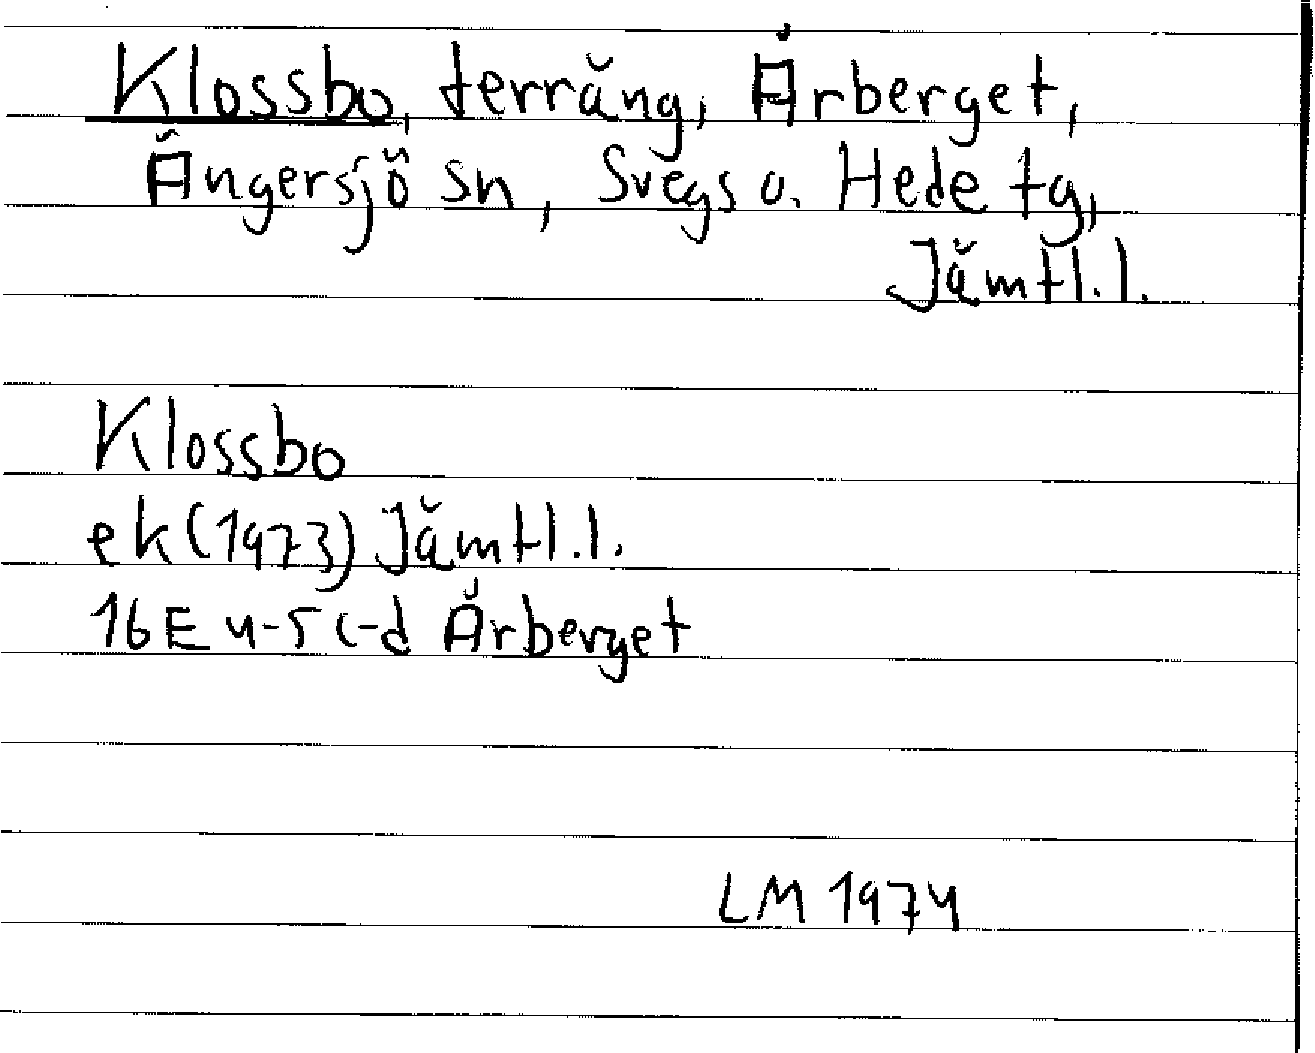 Klossbo, terräng, Årberget,
Ängersjö sn, Svegs o. Hede tg,
Jämtl.l.
Klossbo
ek (1973) Jämtl.l.
16E 4-5 c-d Årberget
LM 1974